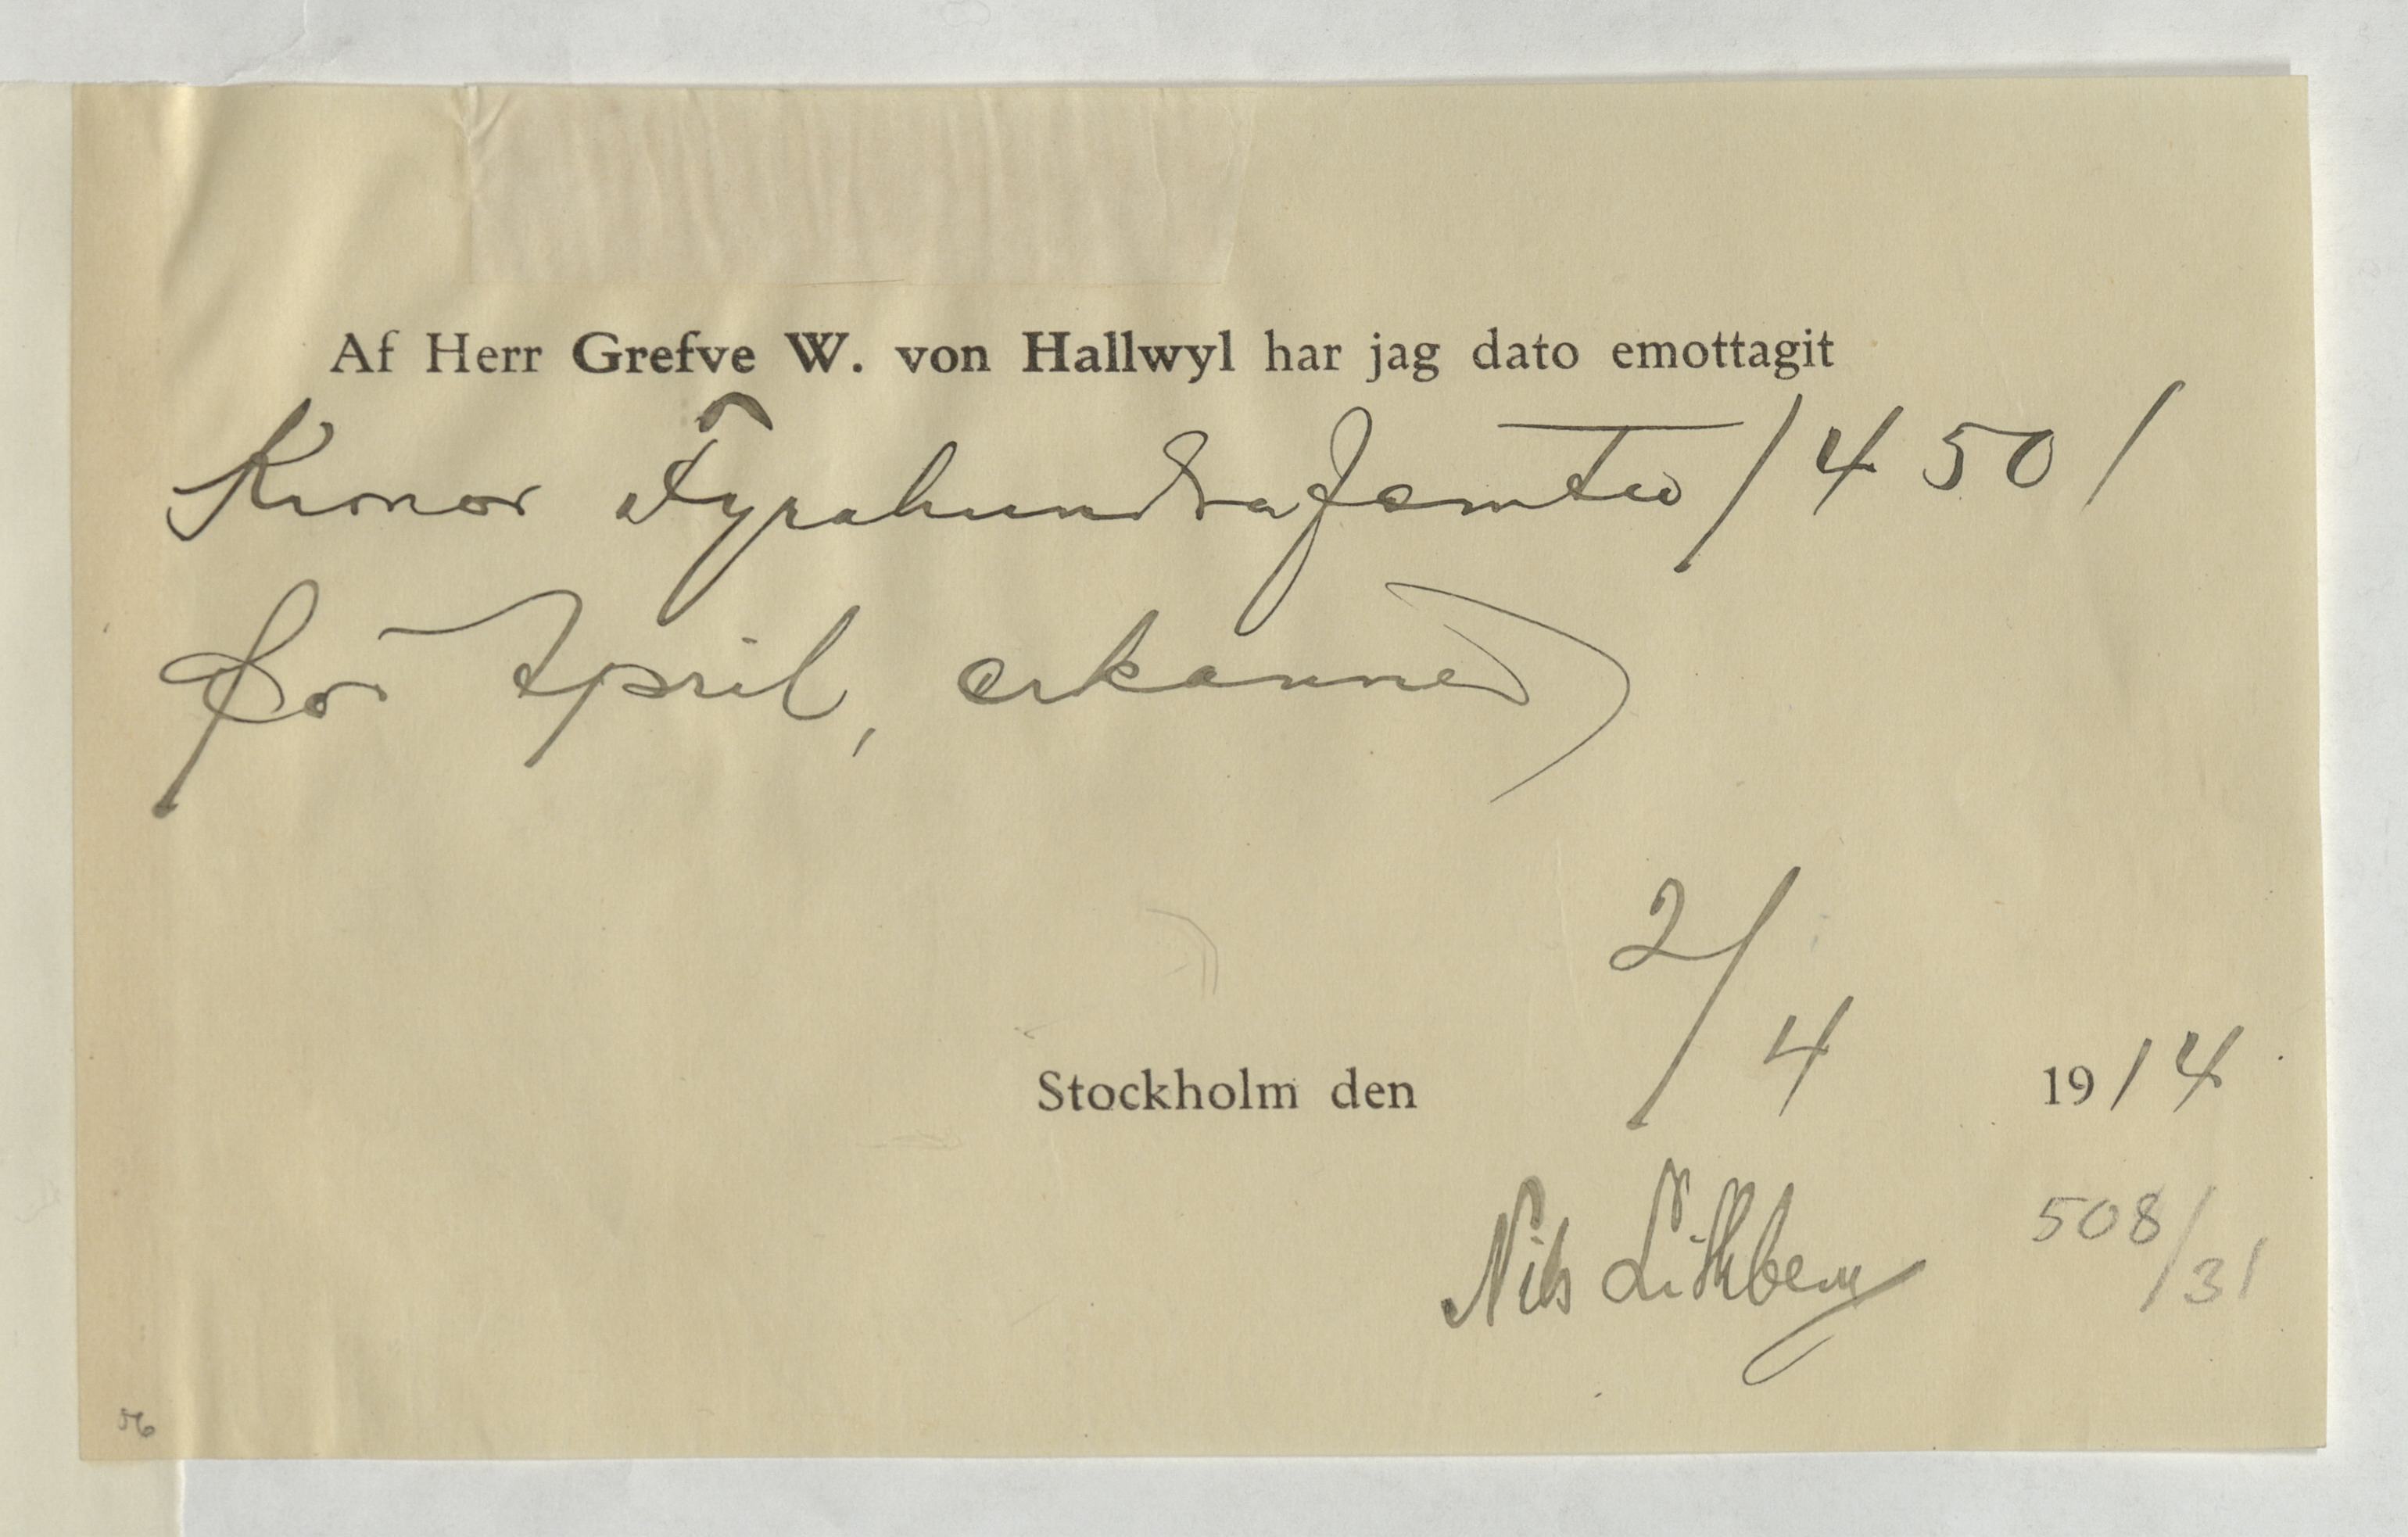 Af Herr Grefve W. von Hallwyl har jag dato emottagit
Kronor Fyrahundrafemtio /450/
för April, erkännes
2/4
Stockholm den 1914
Nils Lithberg
508/31
56